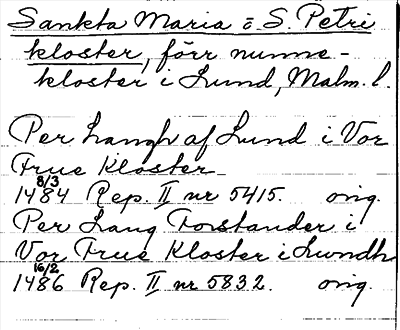 Sankta Maria o. S. Petri
kloster, förr nunne-
kloster i Lund, Malm. l.
Per Langh af Lund i Vor
Frue Kloster
8/3
1484 Rep. II nr 5415. orig.
Per Lang Forstander i
Vor Frue Kloster i Lundh
16/2
1486 Rep. II nr 5832. orig.